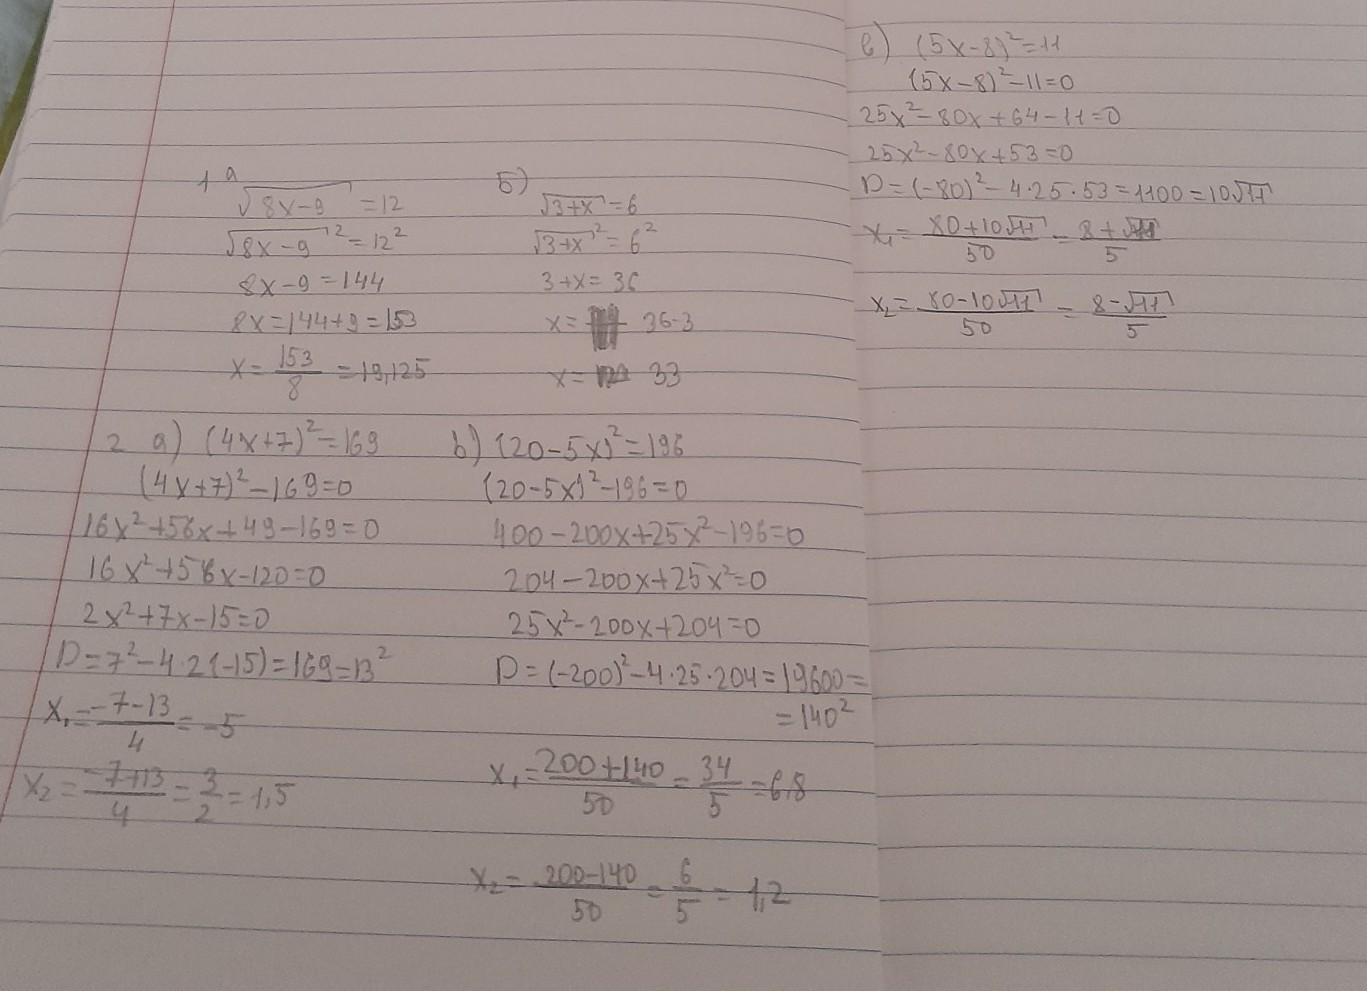 1 a
√8x-9 = 12
√8x-9² = 12²
8x-9 = 144
8x = 144+9 = 153
x = 153/8 = 19,125
Б)
√3+x = 6
√3+x² = 6²
3+x = 36
x = 36-3
x = 33
2 a) (4x+7)² = 169
(4x+7)² - 169 = 0
16x² + 56x + 49 - 169 = 0
16x² + 56x - 120 = 0
2x² + 7x - 15 = 0
D = 7² - 4·2(-15) = 169 = 13²
x₁ = -7-13/4 = -5
x₂ = -7+13/4 = 3/2 = 1,5
b) (20-5x)² = 196
(20-5x)² - 196 = 0
400 - 200x + 25x² - 196 = 0
204 - 200x + 25x² = 0
25x² - 200x + 204 = 0
D = (-200)² - 4·25·204 = 19600 =
= 140²
x₁ = 200+140/50 = 34/5 = 6,8
x₂ = 200-140/50 = 6/5 = 1,2
в) (5x-8)² = 11
(5x-8)² - 11 = 0
25x² - 80x + 64 - 11 = 0
25x² - 80x + 53 = 0
D = (-80)² - 4·25·53 = 1100 = 10√11
x₁ = 80+10√11/50 = 8+√11/5
x₂ = 80-10√11/50 = 8-√11/5